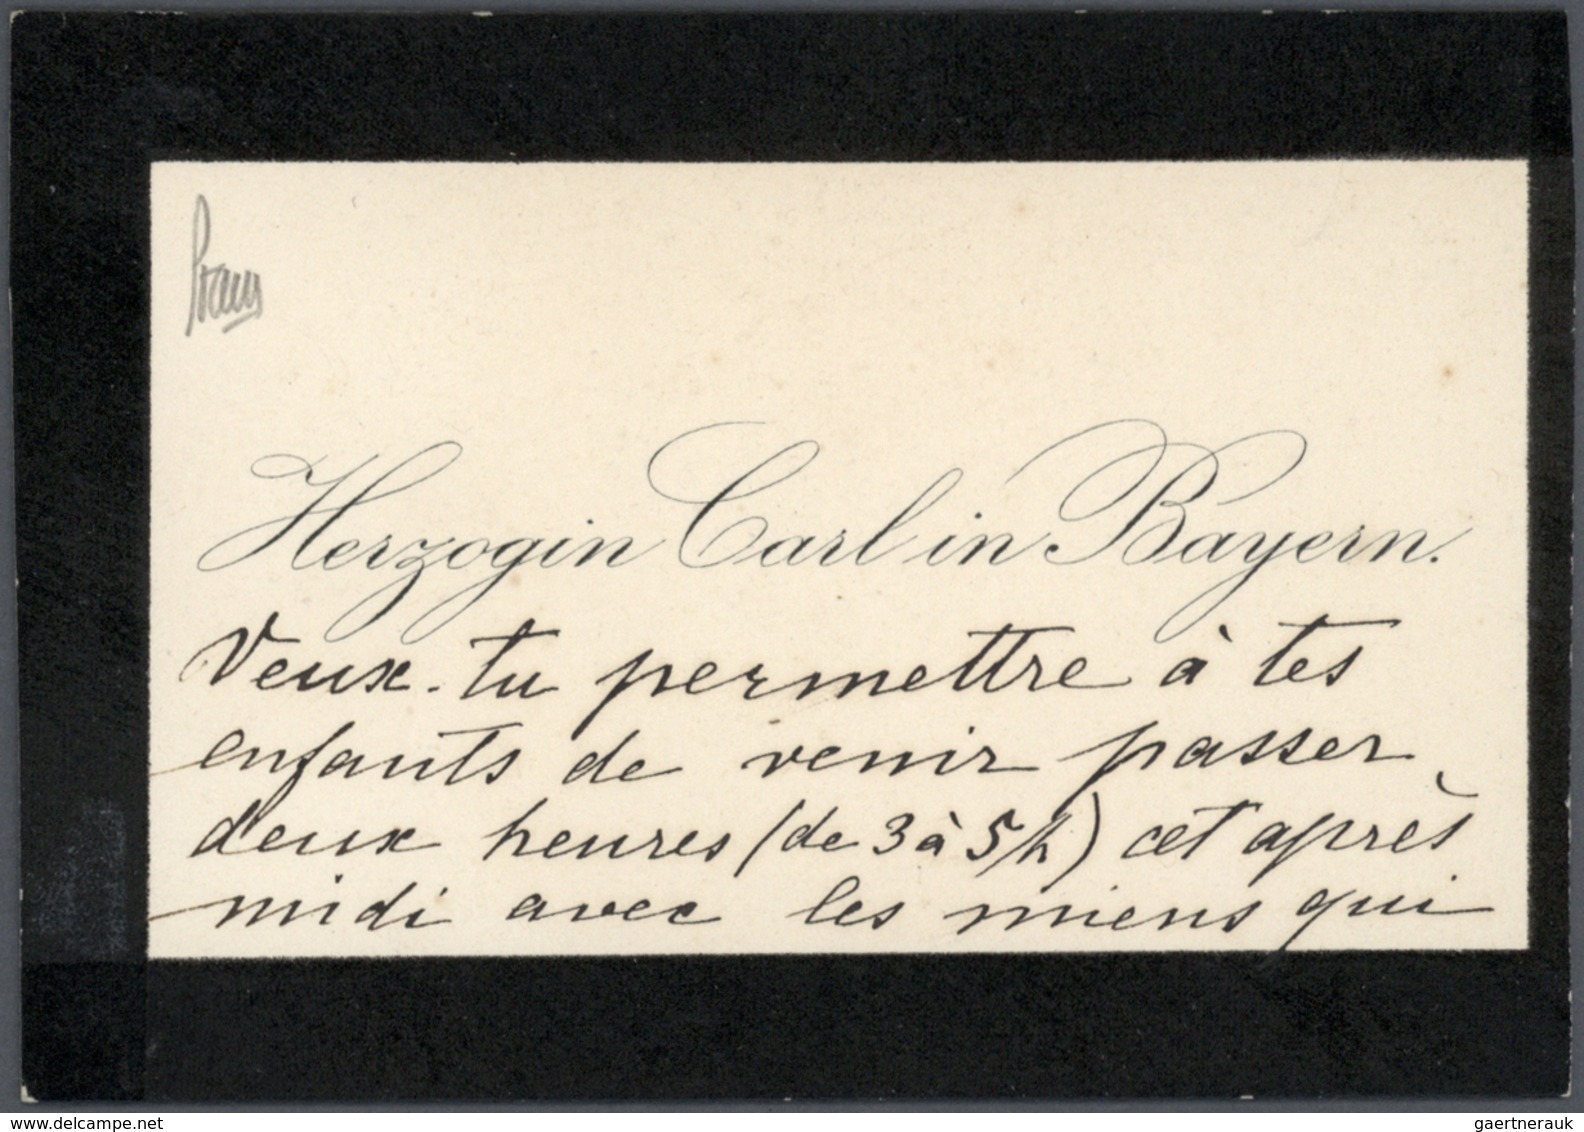 Herzogin Carl in Bayern.
Veux-tu permettre à tes
enfants de venir passer
deux heures (de 3 à 5h) cet après
midi avec les miens qui
www.delcampe.net
gaertnerauk